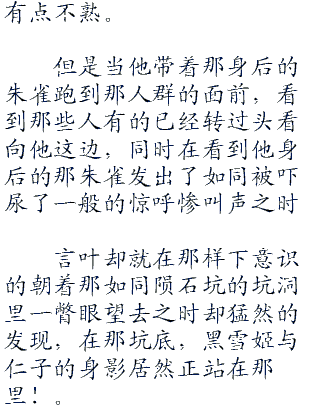 有点不熟。
但是当他带着那身后的
朱雀跑到那人群的面前，看
到那些人有的已经转过头看
向他这边，同时在看到他身
后的那朱雀发出了如同被吓
尿了一般的惊呼惨叫声之时
言叶却就在那样下意识
的朝着那如同陨石坑的坑洞
里一瞥眼望去之时却猛然的
发现，在那坑底，黑雪姬与
仁子的身影居然正站在那
里！。